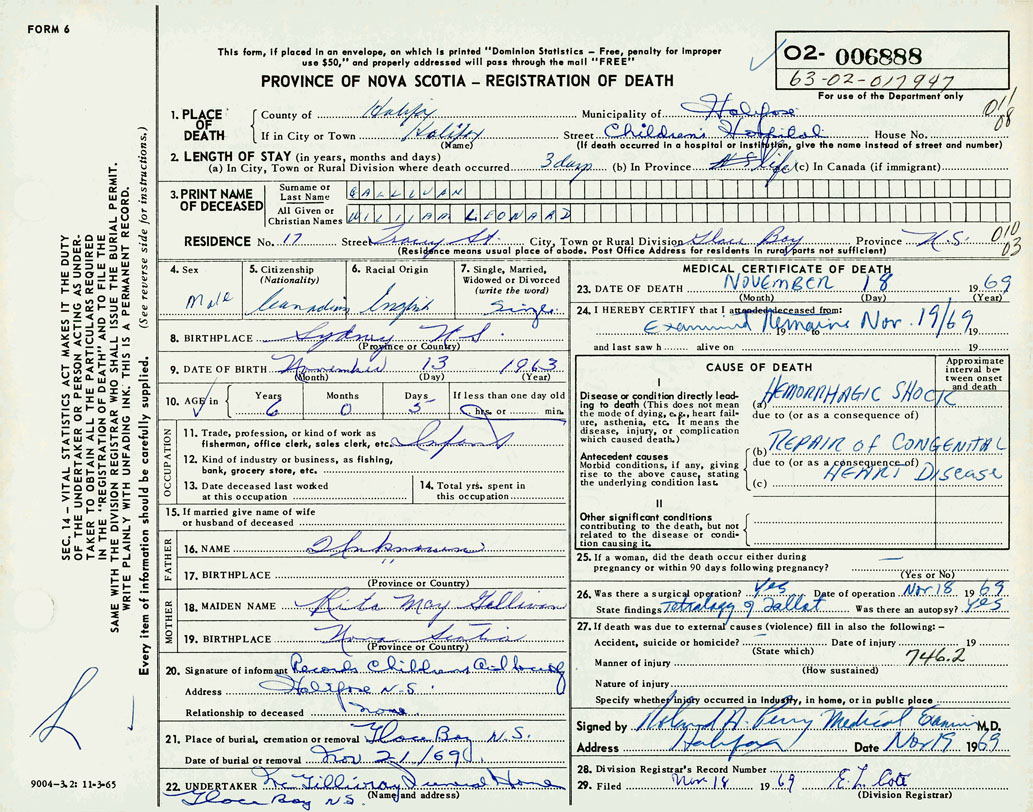 FORM 6
This form, if placed in an envelope, on which is printed "Dominion Statistics – Free, penalty for improper
use $50," and properly addressed will pass through the mail "FREE"
PROVINCE OF NOVA SCOTIA – REGISTRATION OF DEATH
02- 006888
63-02-017947
For use of the Department only
1. PLACE OF DEATH
County of Halifax Municipality of Halifax 011
08
If in City or Town Halifax Street Children's Hospital House No.
(Name) (If death occurred in a hospital or institution, give the name instead of street and number)
2. LENGTH OF STAY (in years, months and days)
(a) In City, Town or Rural Division where death occurred 3 days (b) In Province life (c) In Canada (if immigrant)
3. PRINT NAME OF DECEASED
Surname or Last Name GALLIVAN
All Given or Christian Names WILLIAM LEONARD
RESIDENCE No. 17 Street Tracey St. City, Town or Rural Division Glace Bay Province N.S. 010
03
(Residence means usual place of abode. Post Office Address for residents in rural parts not sufficient)
4. Sex Male
5. Citizenship (Nationality) Canadian
6. Racial Origin English
7. Single, Married, Widowed or Divorced (write the word) Single
8. BIRTHPLACE Sydney N.S.
(Province or Country)
9. DATE OF BIRTH November 13 1963
(Month) (Day) (Year)
10. AGE in Years 6 Months 0 Days 5 If less than one day old hrs. or min.
OCCUPATION
11. Trade, profession, or kind of work as
fisherman, office clerk, sales clerk, etc. Infant
12. Kind of industry or business, as fishing,
bank, grocery store, etc.
13. Date deceased last worked
at this occupation
14. Total yrs. spent in
this occupation
15. If married give name of wife
or husband of deceased
FATHER
16. NAME Unknown
17. BIRTHPLACE "
(Province or Country)
MOTHER
18. MAIDEN NAME Rita May Gallivan
19. BIRTHPLACE Nova Scotia
(Province or Country)
20. Signature of informant Records Childrens
Address Halifax N.S.
Relationship to deceased None
21. Place of burial, cremation or removal Glace Bay N.S.
Date of burial or removal Nov. 21/69
22. UNDERTAKER McGillivray Funeral Home
(Name and address)
Glace Bay N.S.
MEDICAL CERTIFICATE OF DEATH
23. DATE OF DEATH NOVEMBER 18 1969
(Month) (Day) (Year)
24. I HEREBY CERTIFY that I attended deceased from:
Examined Remains Nov. 19/69 19
and last saw h alive on 19
CAUSE OF DEATH
Approximate interval between onset and death
I
Disease or condition directly leading to death (This does not mean the mode of dying, e.g., heart failure, asthenia, etc. It means the disease, injury, or complication which caused death.)
(a) HEMORRHAGIC SHOCK
due to (or as a consequence of)
Antecedent causes
Morbid conditions, if any, giving rise to the above cause, stating the underlying condition last.
(b) REPAIR OF CONGENITAL
due to (or as a consequence of)
(c) HEART DISEASE
II
Other significant conditions
contributing to the death, but not related to the disease or condition causing it.
25. If a woman, did the death occur either during
pregnancy or within 90 days following pregnancy? —
(Yes or No)
26. Was there a surgical operation? Yes Date of operation Nov 18 1969
State findings Tetralogy of Fallot Was there an autopsy? Yes
27. If death was due to external causes (violence) fill in also the following: –
Accident, suicide or homicide? Date of injury 19
(State which)
Manner of injury 746.2
(How sustained)
Nature of injury
Specify whether injury occurred in industry, in home, or in public place
Signed by Roland H. Perry Medical Examiner M.D.
Address Halifax Date Nov 19 1969
28. Division Registrar's Record Number
29. Filed Nov 18 1969 E. L. Cote
(Division Registrar)
SEC. 14 – VITAL STATISTICS ACT MAKES IT THE DUTY
OF THE UNDERTAKER OR PERSON ACTING AS UNDER-
TAKER TO OBTAIN ALL THE PARTICULARS REQUIRED
IN THE "REGISTRATION OF DEATH" AND TO FILE THE
SAME WITH THE DIVISION REGISTRAR WHO SHALL ISSUE THE BURIAL PERMIT.
WRITE PLAINLY WITH UNFADING INK. THIS IS A PERMANENT RECORD.
Every item of information should be carefully supplied. (See reverse side for instructions.)
9004-3.2: 11-3-65